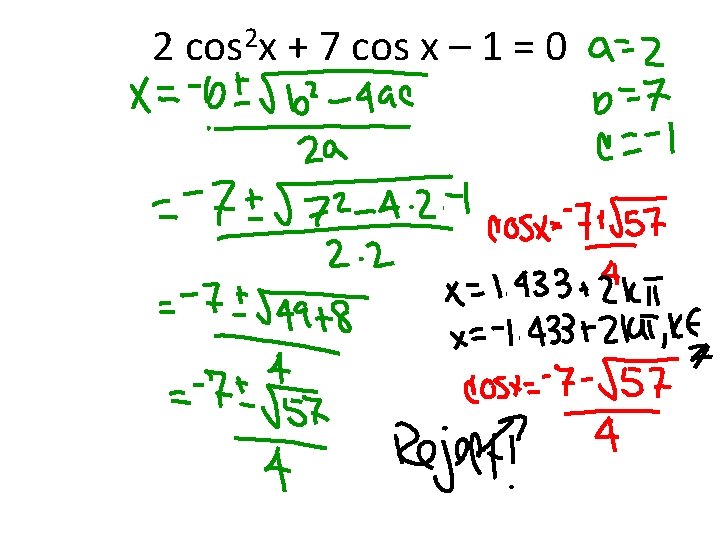 2 cos²x + 7 cos x – 1 = 0
a=2
b=7
c=-1
x = -b ± √(b² - 4ac)
2a
= -7 ± √(7² - 4·2·-1)
2·2
= -7 ± √(49+8)
4
= -7 ± √57
4
cosx = -7+√57
4
x = 1.433 + 2kπ
x = -1.433 + 2kπ, k∈
cosx = -7-√57
4
Reject!